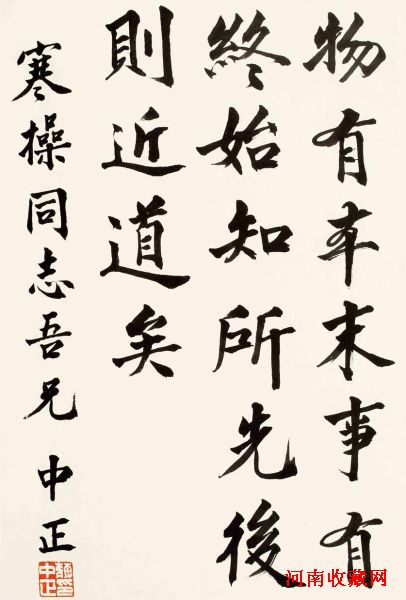 物有本末事有
終始知所先後
則近道矣
寒操同志吾兄 中正
河南收藏网